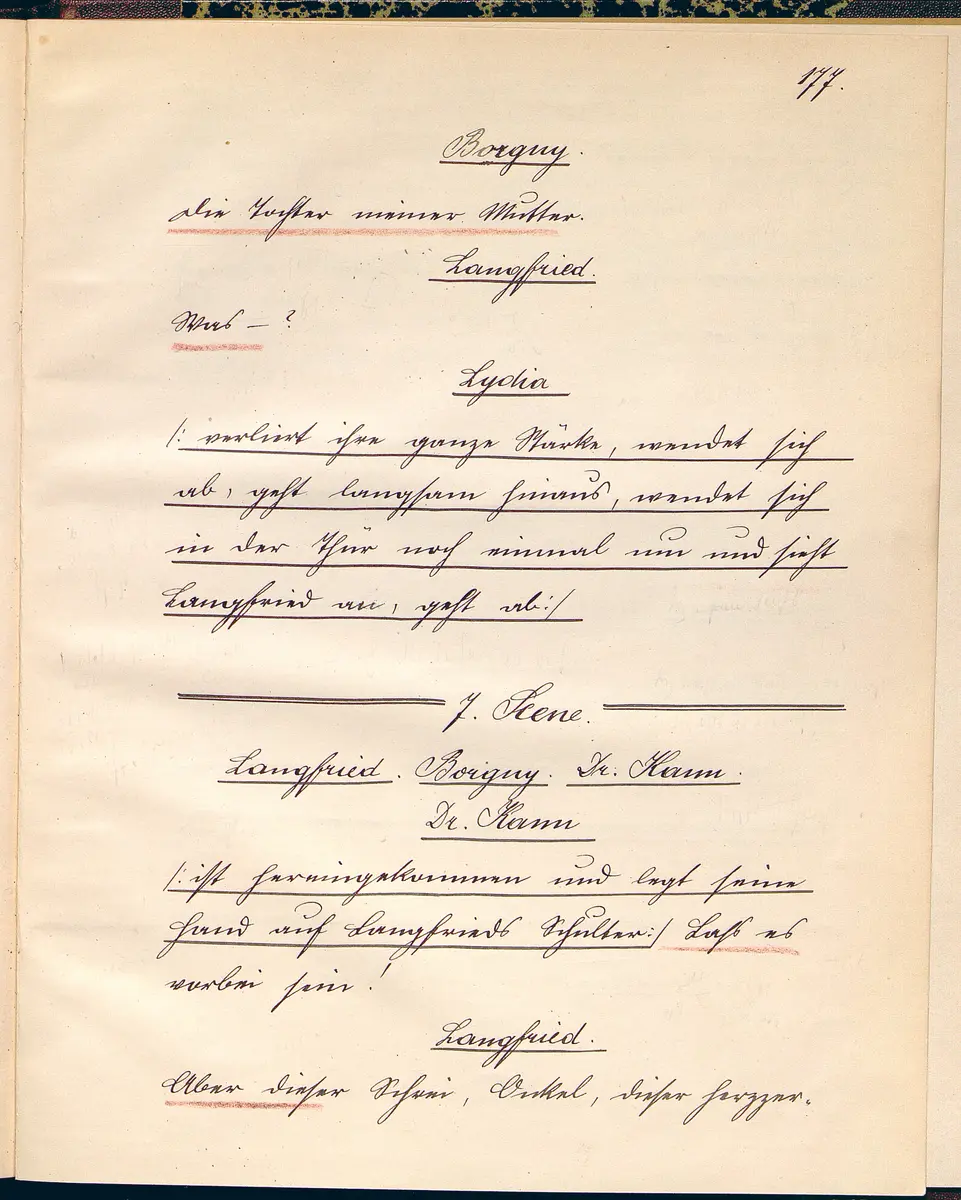 177.
Borgny.
Die Tochter meiner Mutter.
Langfried.
Was — ?
Lydia
/: verliert ihre ganze Stärke, wendet sich
ab, geht langsam hinaus, wendet sich
in der Thür noch einmal um und sieht
Langfried an, geht ab:/
7. Scene.
Langfried. Borgny. Dr. Kann.
Dr. Kann
/: ist hereingekommen und legt seine
Hand auf Langfrieds Schulter:/ Laß es
vorbei sein!
Langfried.
Aber dieser Schrei, Onkel, dieser herzzer-